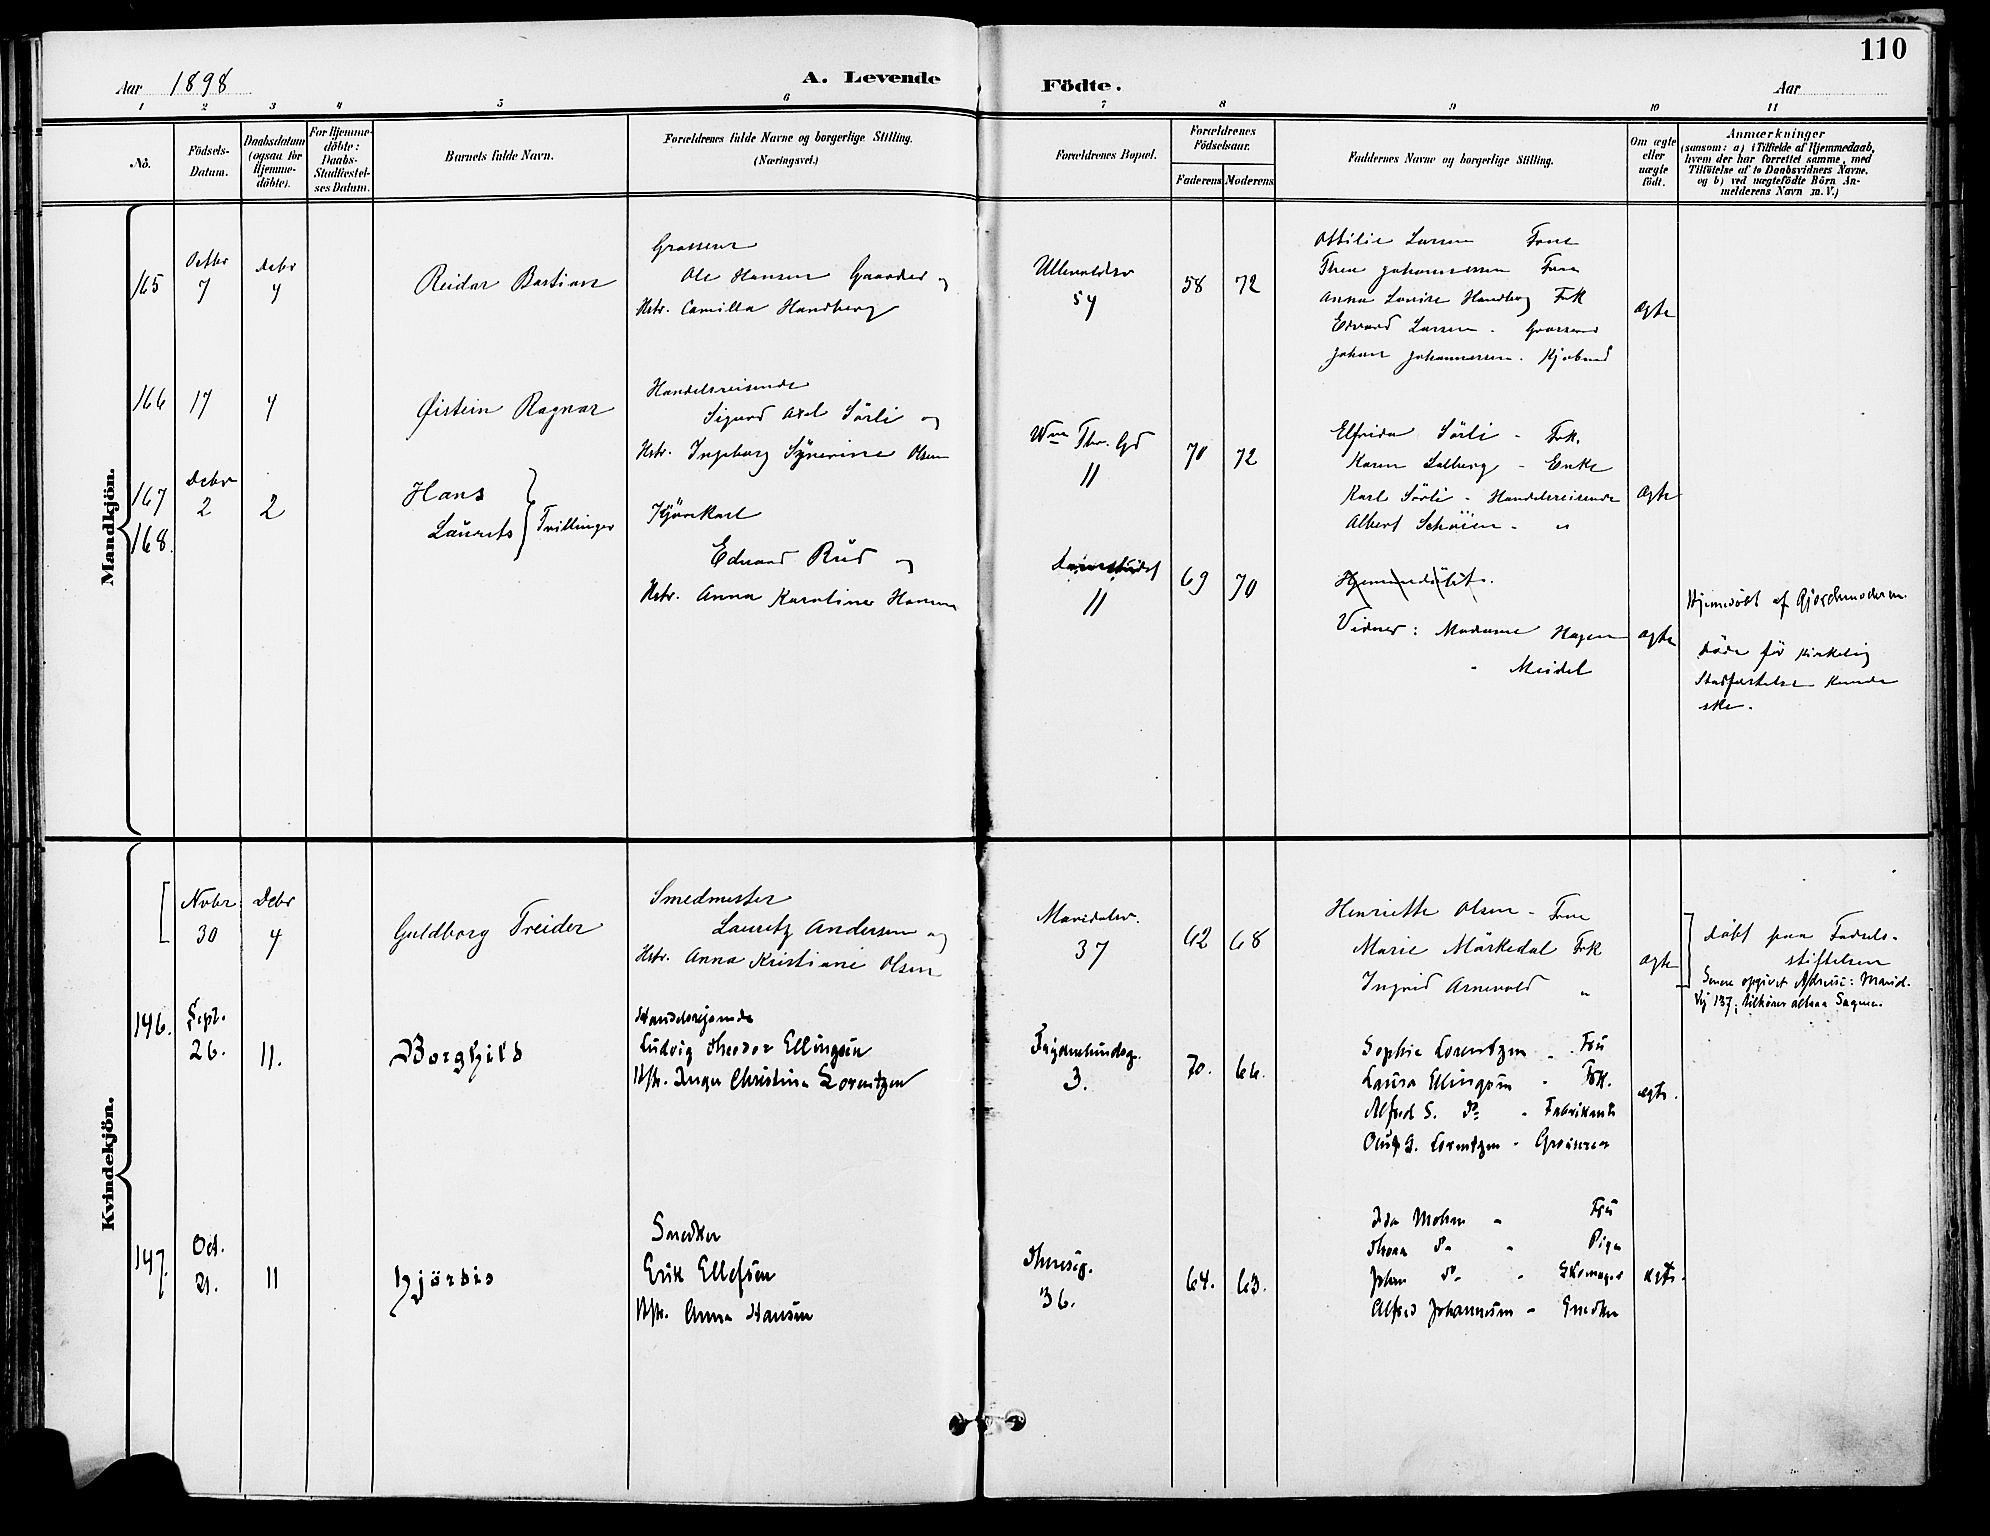 110
Aar 1898
A. Levende
Födte.
Aar
1 2 3 4 5 6 7 8 9 10 11
No.
Födsels-
Datum.
Daabsdatum
(ogsaa for
Hjemme-
döbte).
For Hjemme-
döbte:
Daabs-
Stadfæstel-
ses Datum.
Barnets fulde Navn.
Forældrenes fulde Navne og borgerlige Stilling.
(Næringsvei.)
Forældrenes Bopæl.
Forældrenes
Födselsaar.
Faderens Moderens
Faddernes Navne og borgerlige Stilling.
Om ægte
eller
uægte
födt.
Anmærkninger
(saasom: a) i Tilfælde af Hjemmedaab,
hvem der har forrettet samme, med
Tilföielse af to Daabsvidners Navne.
og b) ved uægtefödte Börn An-
melderens Navn m. V.)
Mandkjön.
165
Octbr
7
Debr
4
Reidar Bastian
Grosserer
Ole Hansen Gaarder og
Hstr. Camilla Handberg
Ullevoldsv
54
58
72
Ottilie Larsen Frue
Thea Johannessen Frue
Anna Lovise Handberg Frk
Edvard Larsen - Grosserer
Johan Johannessen. Kjøbmd
ægte
166
17
4
Øistein Ragnar
Handelsreisende
Sigurd Axel Sörli og
Hstr. Ingeborg Synerine Olsen
Wm Thr. Gd
11
70
72
Elfrida Sörli - Frk.
Karen Solberg - Enke
Karl Sörli - Handelsreisende
Albert Schöien - "
ægte
167
168.
Debr
2
2
Hans
Laurits
Tvillinger
Kjörekarl
Edvard Rud og
Hstr. Anna Karoline Hansen
11
69
70
Hjemmedöbt.
Vidner: Madame Hagen
" Meidel
ægte
Hjemedöbt af Gjordemoderen.
döde för kirkelig
Stadfæstelse kunde
ske.
Kvindekjön.
Nvbr
30
Debr
4
Guldborg Treider
Smedmester
Lauritz Andersen og
Hstr. Anna Kristiane Olsen
Maridalsv.
37
62
68
Henriette Olsen - Frue
Marie Mörkedal Frk
Ingrid Arnevold "
ægte
döbt paa Fødsels-
stiftelsen
Senere opgivet Adresse: Marid.
Vej 137; tilhörer altsaa Sagene.
146.
Sept.
26.
11.
Borghild
Handelsrejsende
Ludvig Theodor Ellingsen
Hstr. Inger Christine Lorentzen
Frydenlundsg.
3.
70.
66.
Sophie Lorentzen - Fru
Laura Ellingsen - Frk.
Alfred S. Do - Fabrikant
Oluf G. Lorentzen - Grosserer
ægte.
147.
Oct.
21.
11
Hjördis
Snedker
Erik Ellefsen
Hstr. Anna Hansen
Theresesg.
36.
64.
63.
Ida Mohn - Fru
Thora Do - Pige
Johan Do - Skomager
Alfred Johannesen - Snedker
ægte.